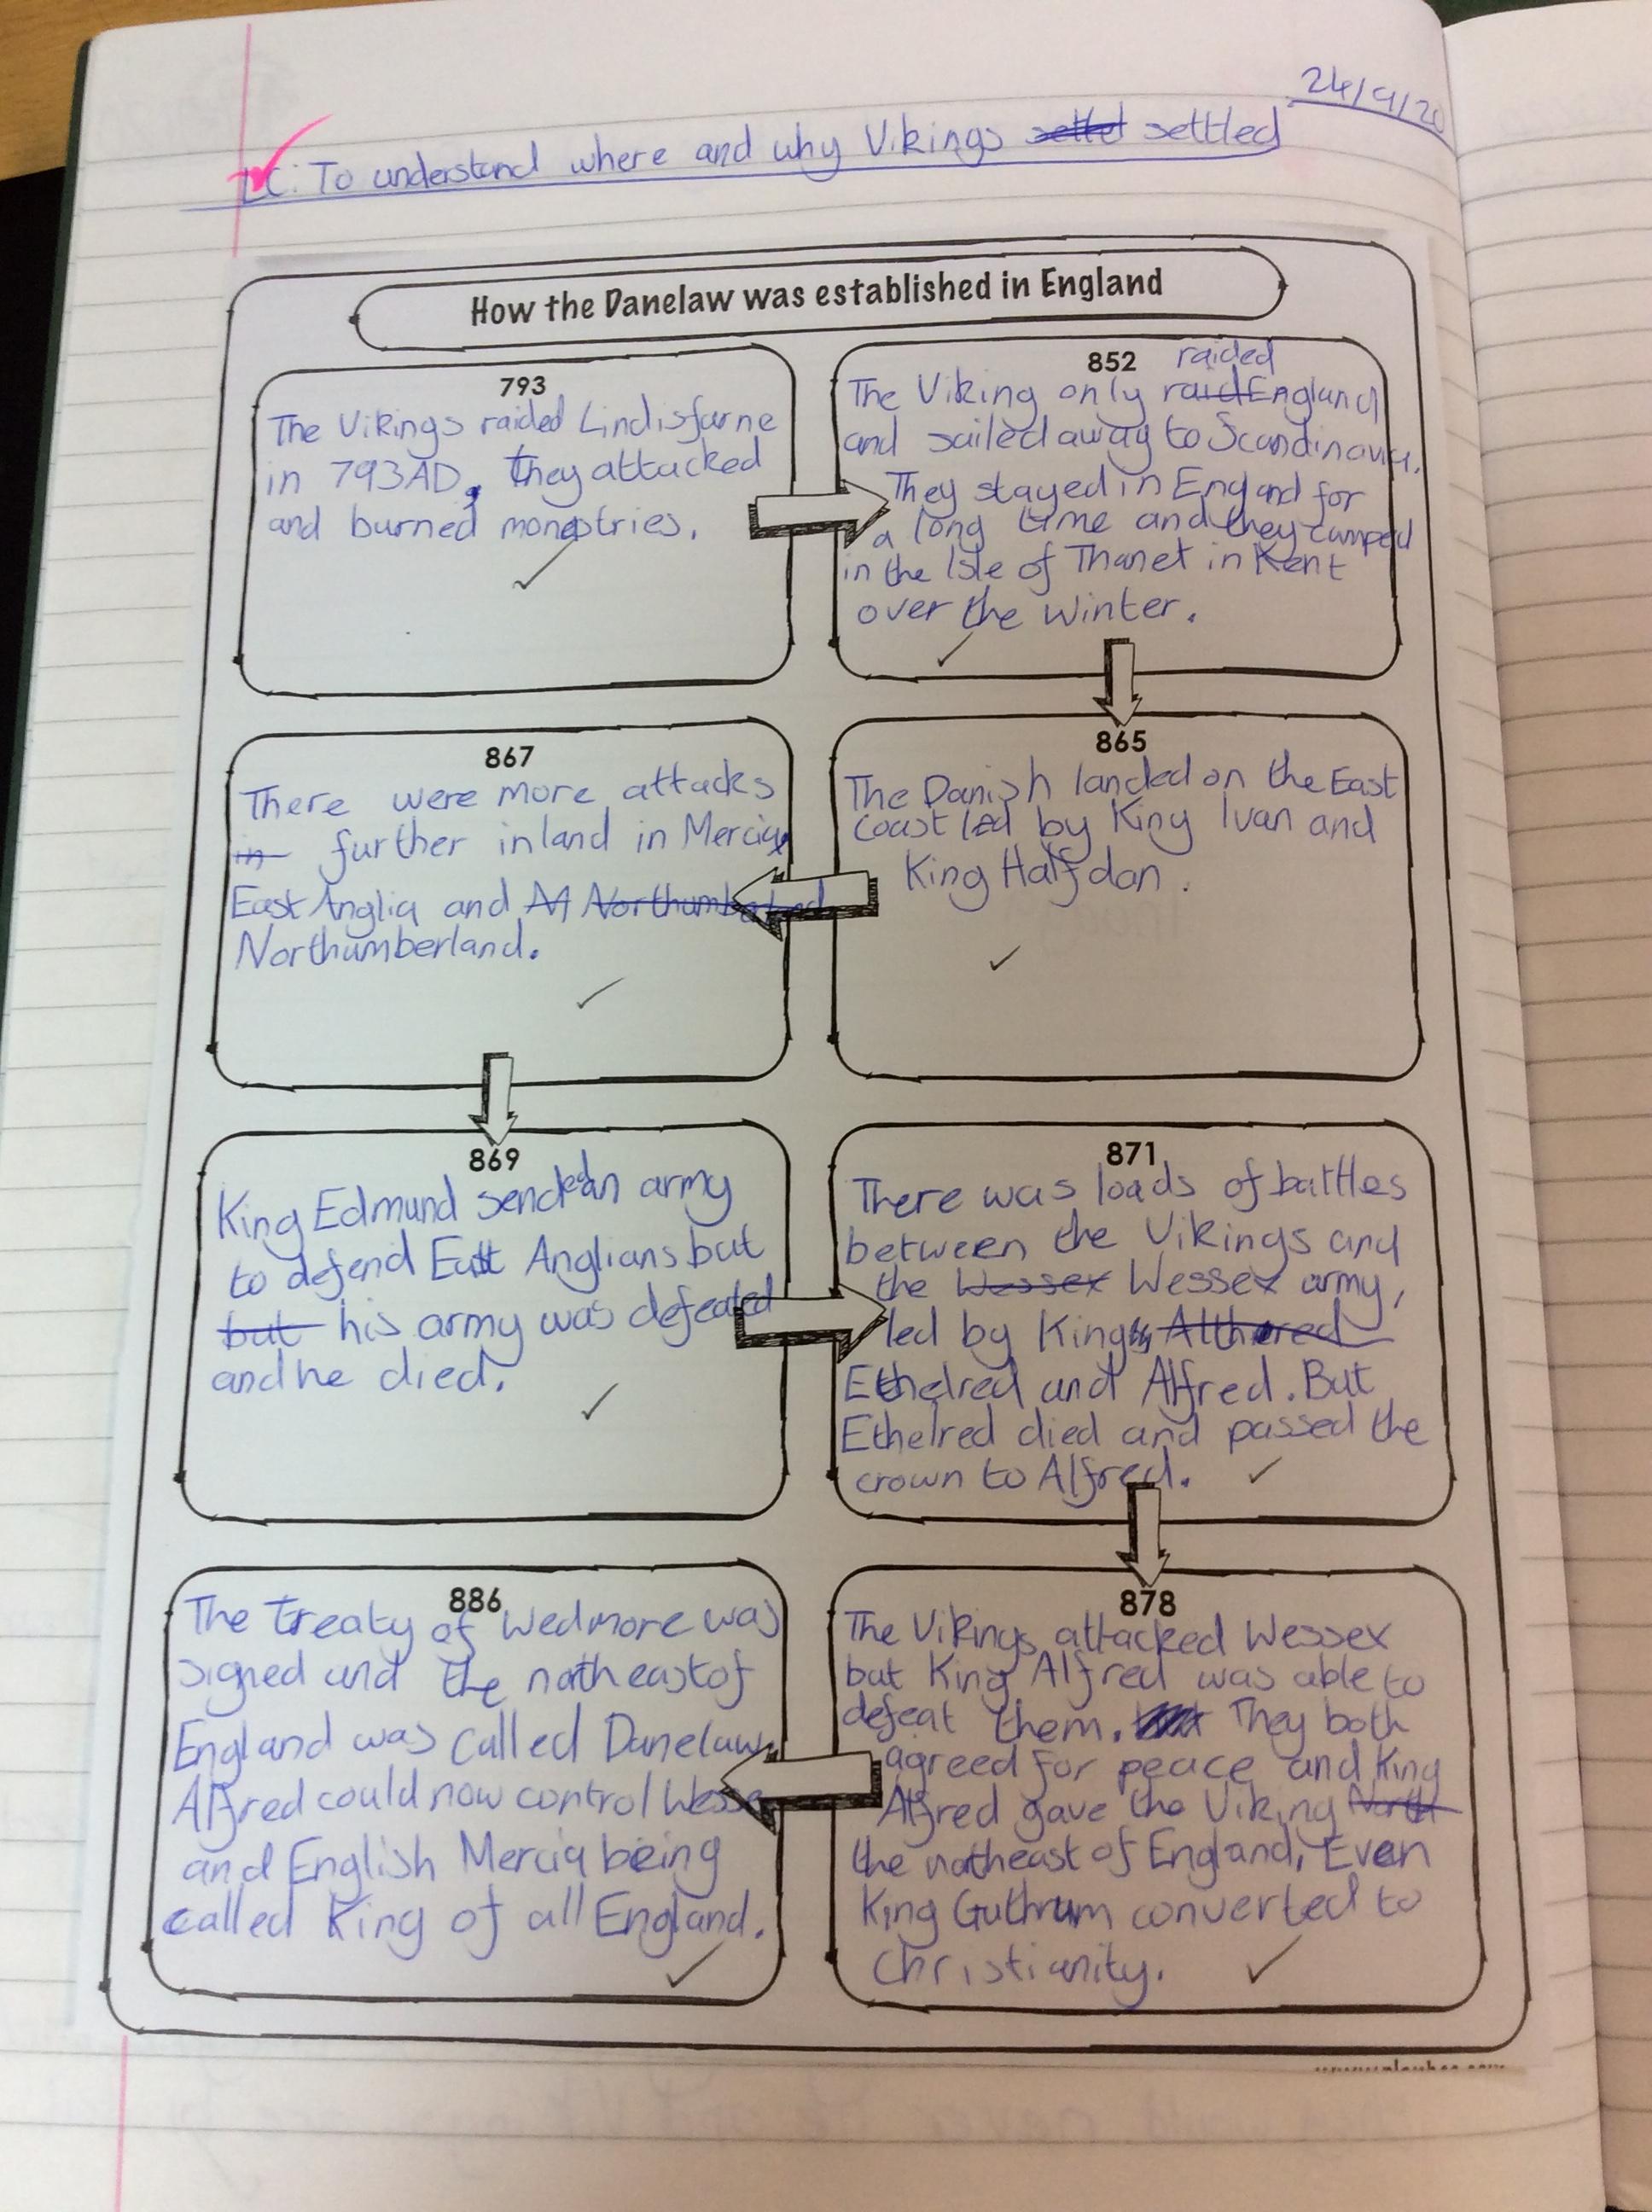 24/9/20
LC: To understand where and why Vikings settled settled
How the Danelaw was established in England
793
The Vikings raided Lindisfarne
in 793AD, they attacked
and burned monastries.
852 raided
The Viking only raid England
and sailed away to Scandinavia.
They stayed in England for
a long time and they camped
in the Isle of Thanet in Kent
over the winter.
865
The Danish landed on the East
coast led by King Ivan and
King Halfdan.
867
There were more attacks
in further inland in Mercia,
East Anglia and Northumberland
Northumberland.
869
King Edmund sended an army
to defend East Anglians but
but his army was defeated
and he died.
871
There was loads of battles
between the Vikings and
the Wessex Wessex army,
led by Kings Althered
Ethelred and Alfred. But
Ethelred died and passed the
crown to Alfred.
878
The Vikings attacked Wessex
but King Alfred was able to
defeat them. They both
agreed for peace and King
Alfred gave the Viking North
the northeast of England, Even
King Guthrum converted to
Christianity.
886
The treaty of Wedmore was
signed and the north east of
England was called Danelaw.
Alfred could now control Wessex
and English Mercia being
called King of all England.